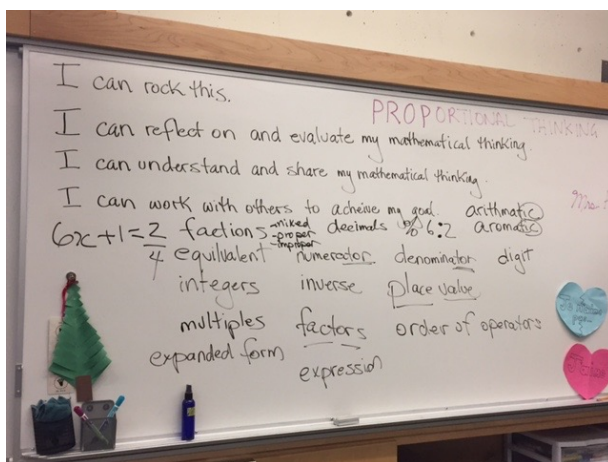 I can rock this.
PROPORTIONAL THINKING
I can reflect on and evaluate my mathematical thinking.
I can understand and share my mathematical thinking.
I can work with others to acheive my goal. arithmatic
6x+1=2/4 factions -mixed -proper -improper decimals % 6:2 aromatic
equilvalent numerador denominator digit
integers inverse place value
multiples factors order of operators
expanded form expression